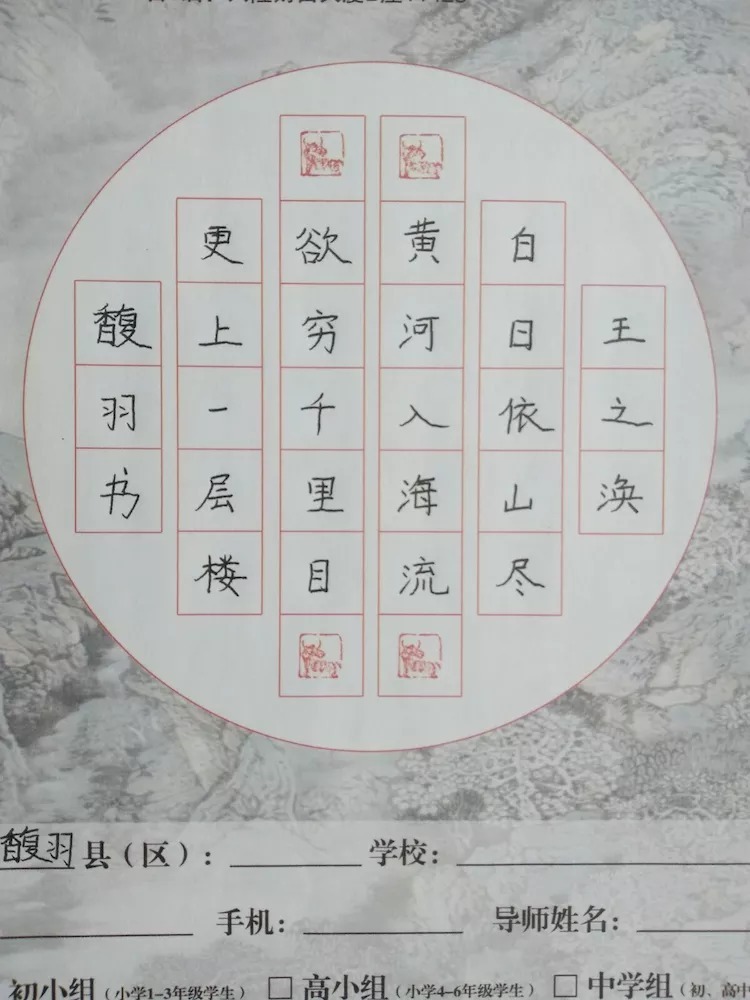 王之涣
白日依山尽
黄河入海流
欲穷千里目
更上一层楼
馥羽书
馥羽 县（区）： 学校：
手机： 导师姓名：
初小组（小学1-3年级学生） □ 高小组（小学4-6年级学生） □ 中学组（初、高中